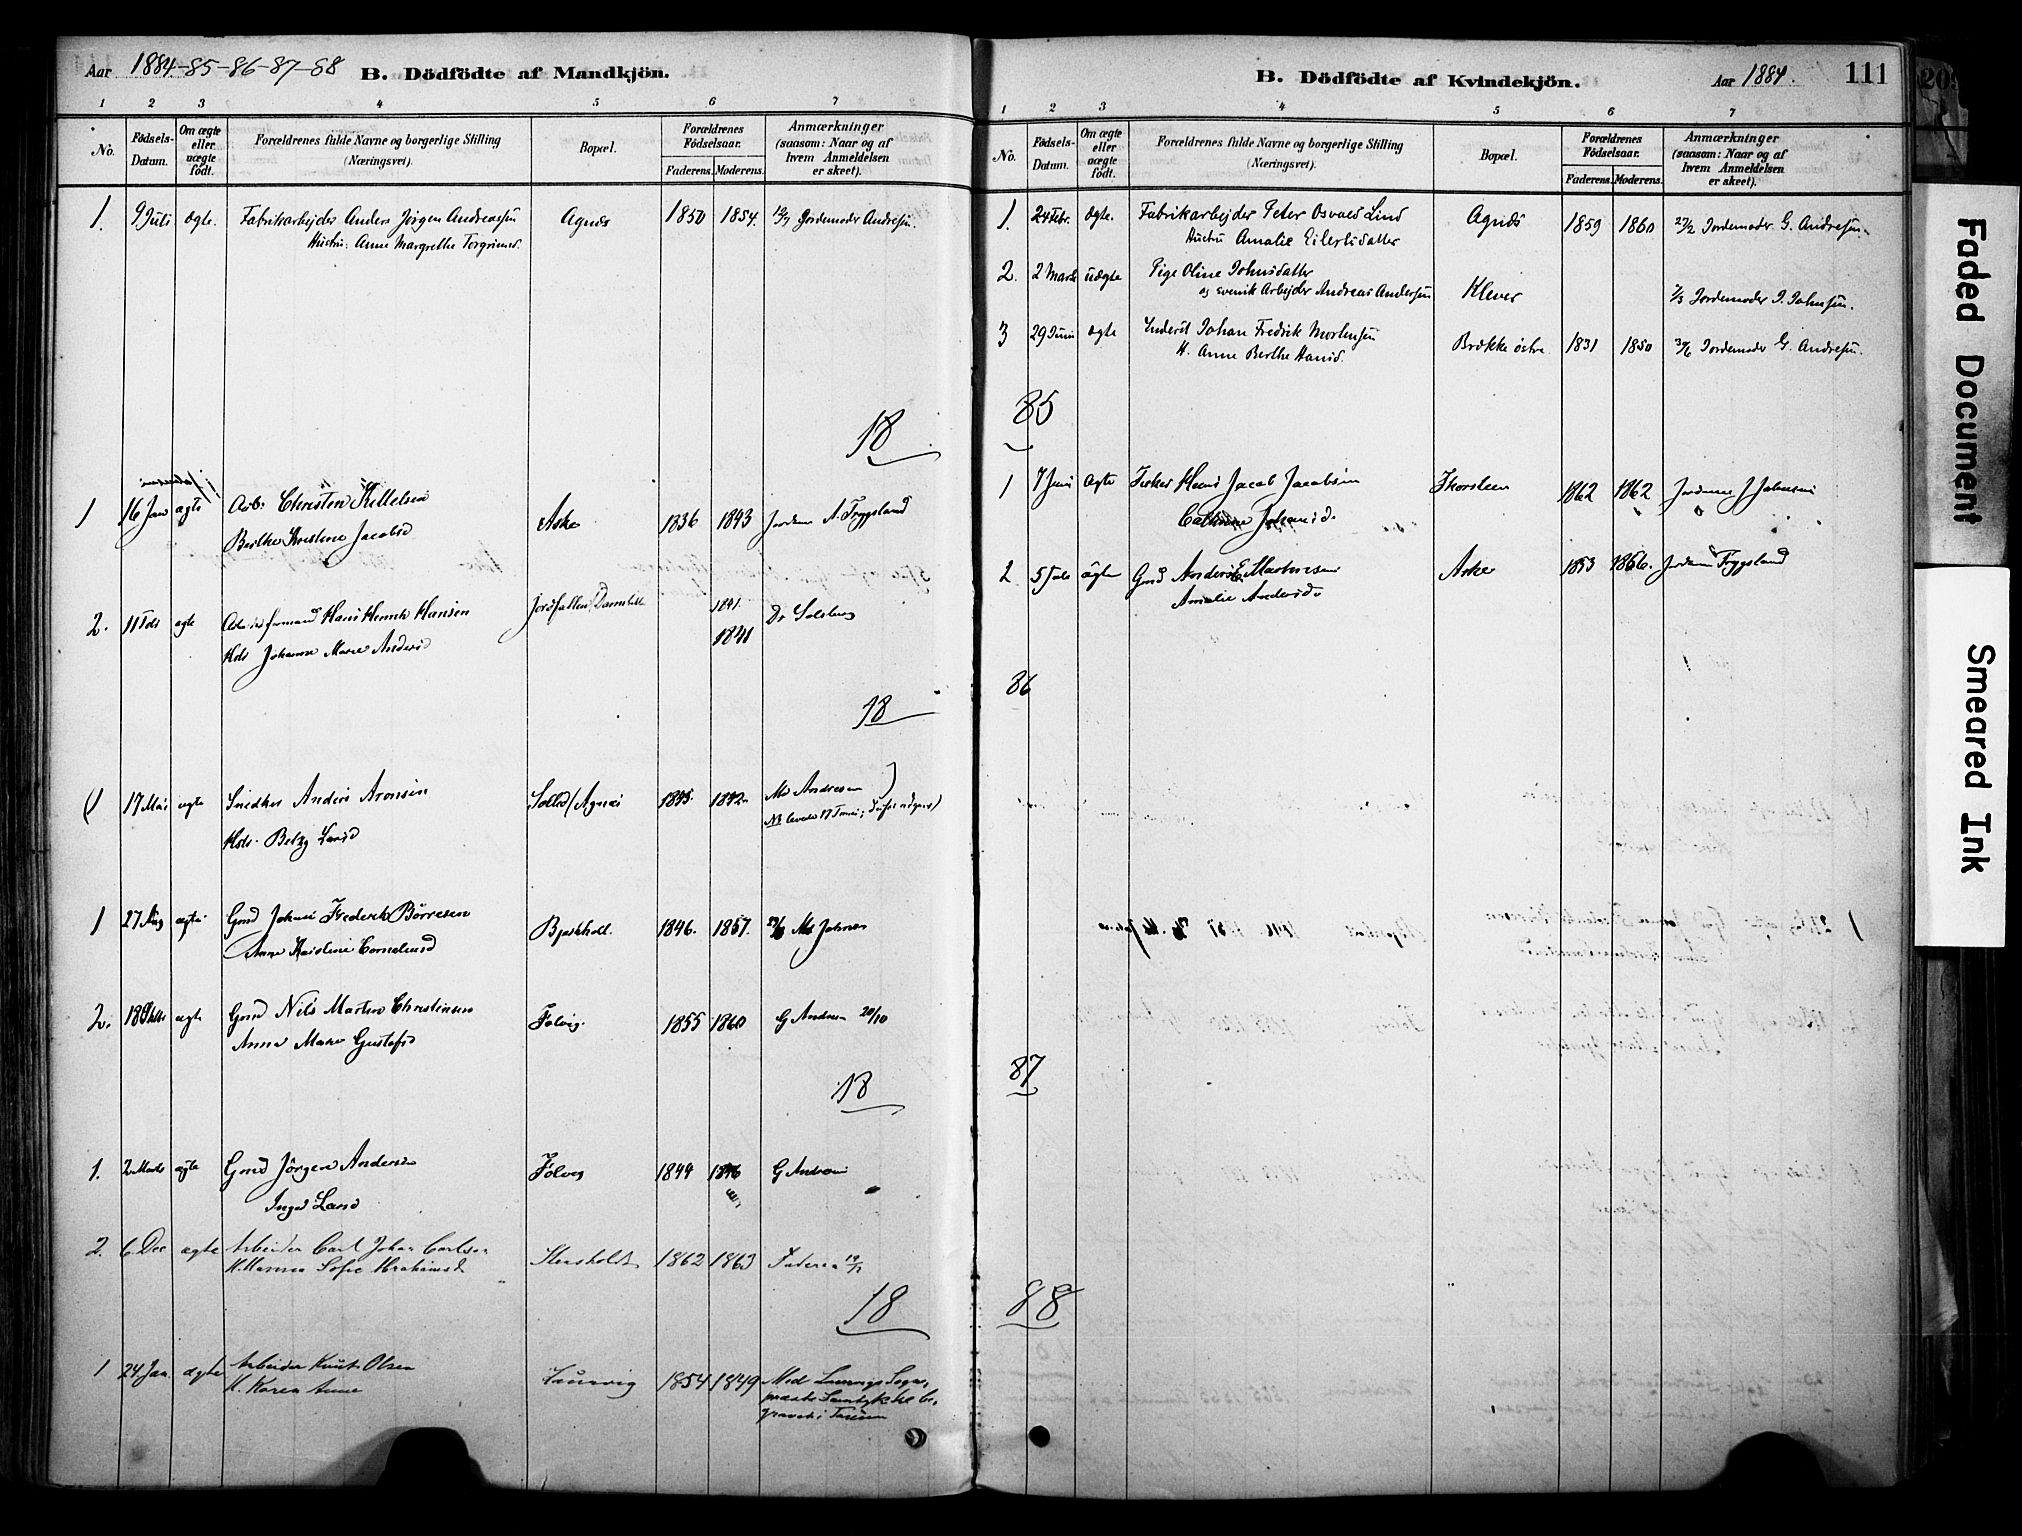 Aar 1884-85-86-87-88 B. Dödfödte af Mandkjön.
1 2 3 4 5 6 7
No. Födsels-Datum. Om ægte eller uægte födt. Forældrenes fulde Navne og borgerlige Stilling (Næringsvei). Bopæl. Forældrenes Födselsaar. Faderens. Moderens. Anmærkninger (saasom: Naar og af hvem Anmeldelsen er skeet).
1. 9 Juli ægte. Fabrikarbejder Anders Jørgen Andreassen Agnæs 1850 1854. Jordemoder Andresen.
Hustru: Anne Margrethe Torgrimsd.
18
1 16 Jan ægte Arb: Christen Kittelsen Aske 1836 1843 Jordem A. Tryggsland
Berthe Kristine Jacobsd
2. 11 ægte Hans Henrik Hansen 1841. Dr Solberg
Hds Johanne Marie Andersd 1841
18
(1 17 Mai ægte Snedker Anders Aronsen Agnæs 1845. 1842. Md Andresen )
Hds. Betzy Larsd NB levede 17
1 27 Aug ægte Gmd Johan Frederik Börresen Bjerkholt. 1846. 1857. Md Johnsen
Anne Karoline Cornelsusd
2. 18 ægte Gmd Nils Martin Christensen Folvig. 1855 1860 G Andresen 20/10
Anna Marie Gustafsd
18
1. 2 Marts ægte Gmd Jörgen Andersen Folvig 1844 1846 G Andresen
Inged Larsd
2. 6 Dec ægte Arbeider Carl Johan Carlsen 1862 1863 Faderen
H. Hanna Sofie Abrahamsd
18
1 24 Jan. ægte Arbeider Knut Olsen Laurvig 1854 1849 Med Laurvigs Sogne-
H. Karen Anne præsts Samtykke be-
gravet i
B. Dödfödte af Kvindekjön. Aar 1884. 111
1 2 3 4 5 6 7
No. Födsels-Datum. Om ægte eller uægte födt. Forældrenes fulde Navne og borgerlige Stilling (Næringsvei). Bopæl. Forældrenes Födselsaar. Faderens. Moderens. Anmærkninger (saasom: Naar og af hvem Anmeldelsen er skeet).
1. 24 Febr. ægte. Fabrikarbejder Peter Osvald Lind Agnæs 1859 1860 27/2 Jordemoder G. Andresen.
Hustru Amalie Eilertsdatter
2. 2 Marts uægte Pige Oline Johnsdatter
og svensk Arbejder Andreas Andersen Klever 7/3 Jordemoder I. Johnsen.
3 29 Juni ægte Inderst Johan Fredrik Mortensen Brække østre 1831 1850 30/6 Jordemoder G. Andresen.
H. Anne Berthe Hansd.
85
1 7 Juni ægte Fisker Hans Jacob Jacobsen 1862 1862 Jordemo J Johnsen
Cathrine Johansd.
2 5 ægte Gmd Anders Mathisen Aske 1853 1856. Jordem Tryggsland
Amalie Andersd.
86
87
88
Faded Document
Smeared Ink